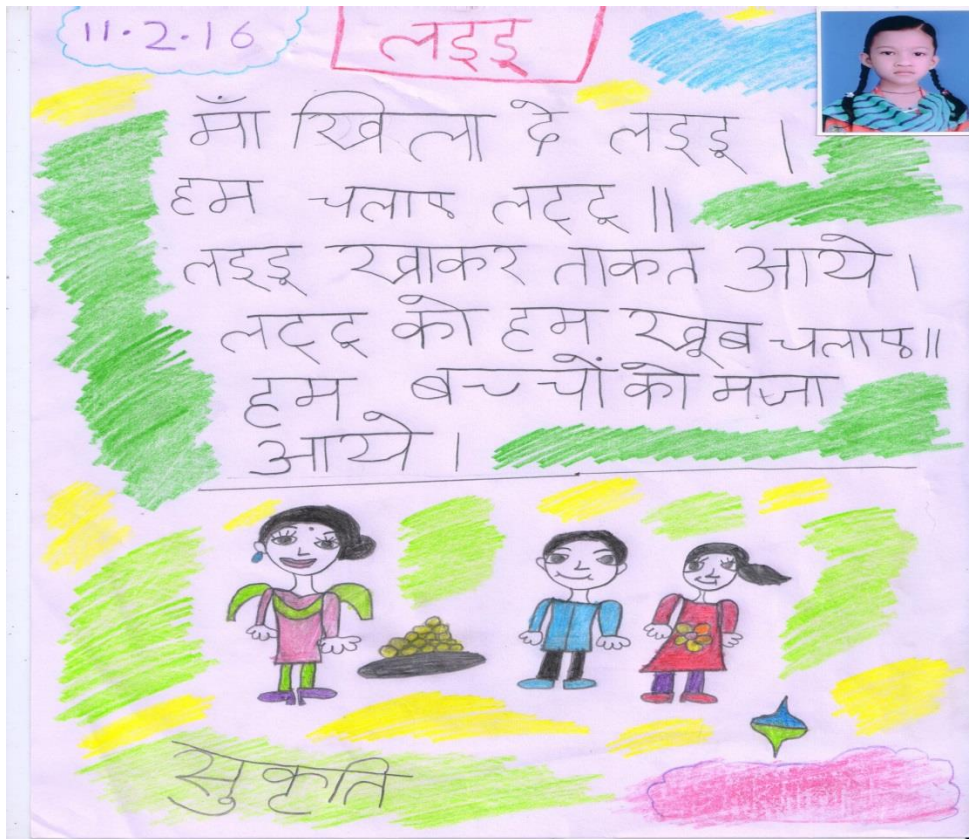 11.2.16
लड्डू
माँ खिला दे लड्डू ।
हम चलाए लट्टू ॥
लड्डू खाकर ताकत आये ।
लट्टू को हम खूब चलाए ॥
हम बच्चों को मजा
आये ।
सुकृति